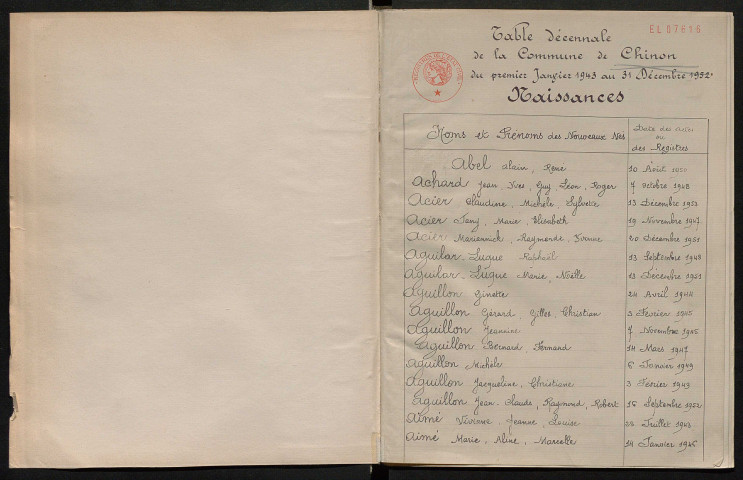 EL 07616
Table décennale
de la Commune de Chinon
du premier Janvier 1943 au 31 Décembre 1952
Naissances
Noms et Prénoms des Nouveaux Nés
Date des Actes
ou
des Registres
Abel Alain, René 10 Août
Achard Jean, Yves, Guy, Léon, Roger 7 Octobre 1948
Acier Claudine, Michèle, Sylvette 13 Décembre
Acier Jany, Marie, Elisabeth 19 Novembre 1947
Acier Mariannick, Raymonde, Yvonne 20 Décembre 1951
Aguilar-Luque Raphaël 13 Septembre 1948
Aguilar-Luque Marie, Noëlle Décembre 1951
Aguillon Ginette 24 Avril 1944
Aguillon Gérard, Gilles, Christian 3 Février 1945
Aguillon Jeannine 7 Novembre 1945
Aguillon Bernard, Fernand 14 Mars 1947
Aguillon Michèle 6 Janvier 1949
Aguillon Jacqueline, Christiane 3 Février 1949
Aguillon Jean-Claude, Raymond, Robert Septembre 1952
Aimé Vivienne, Jeanne, Louise 22 Juillet 1943
Aimé Marie, Aline, Marcelle 14 Janvier 1946